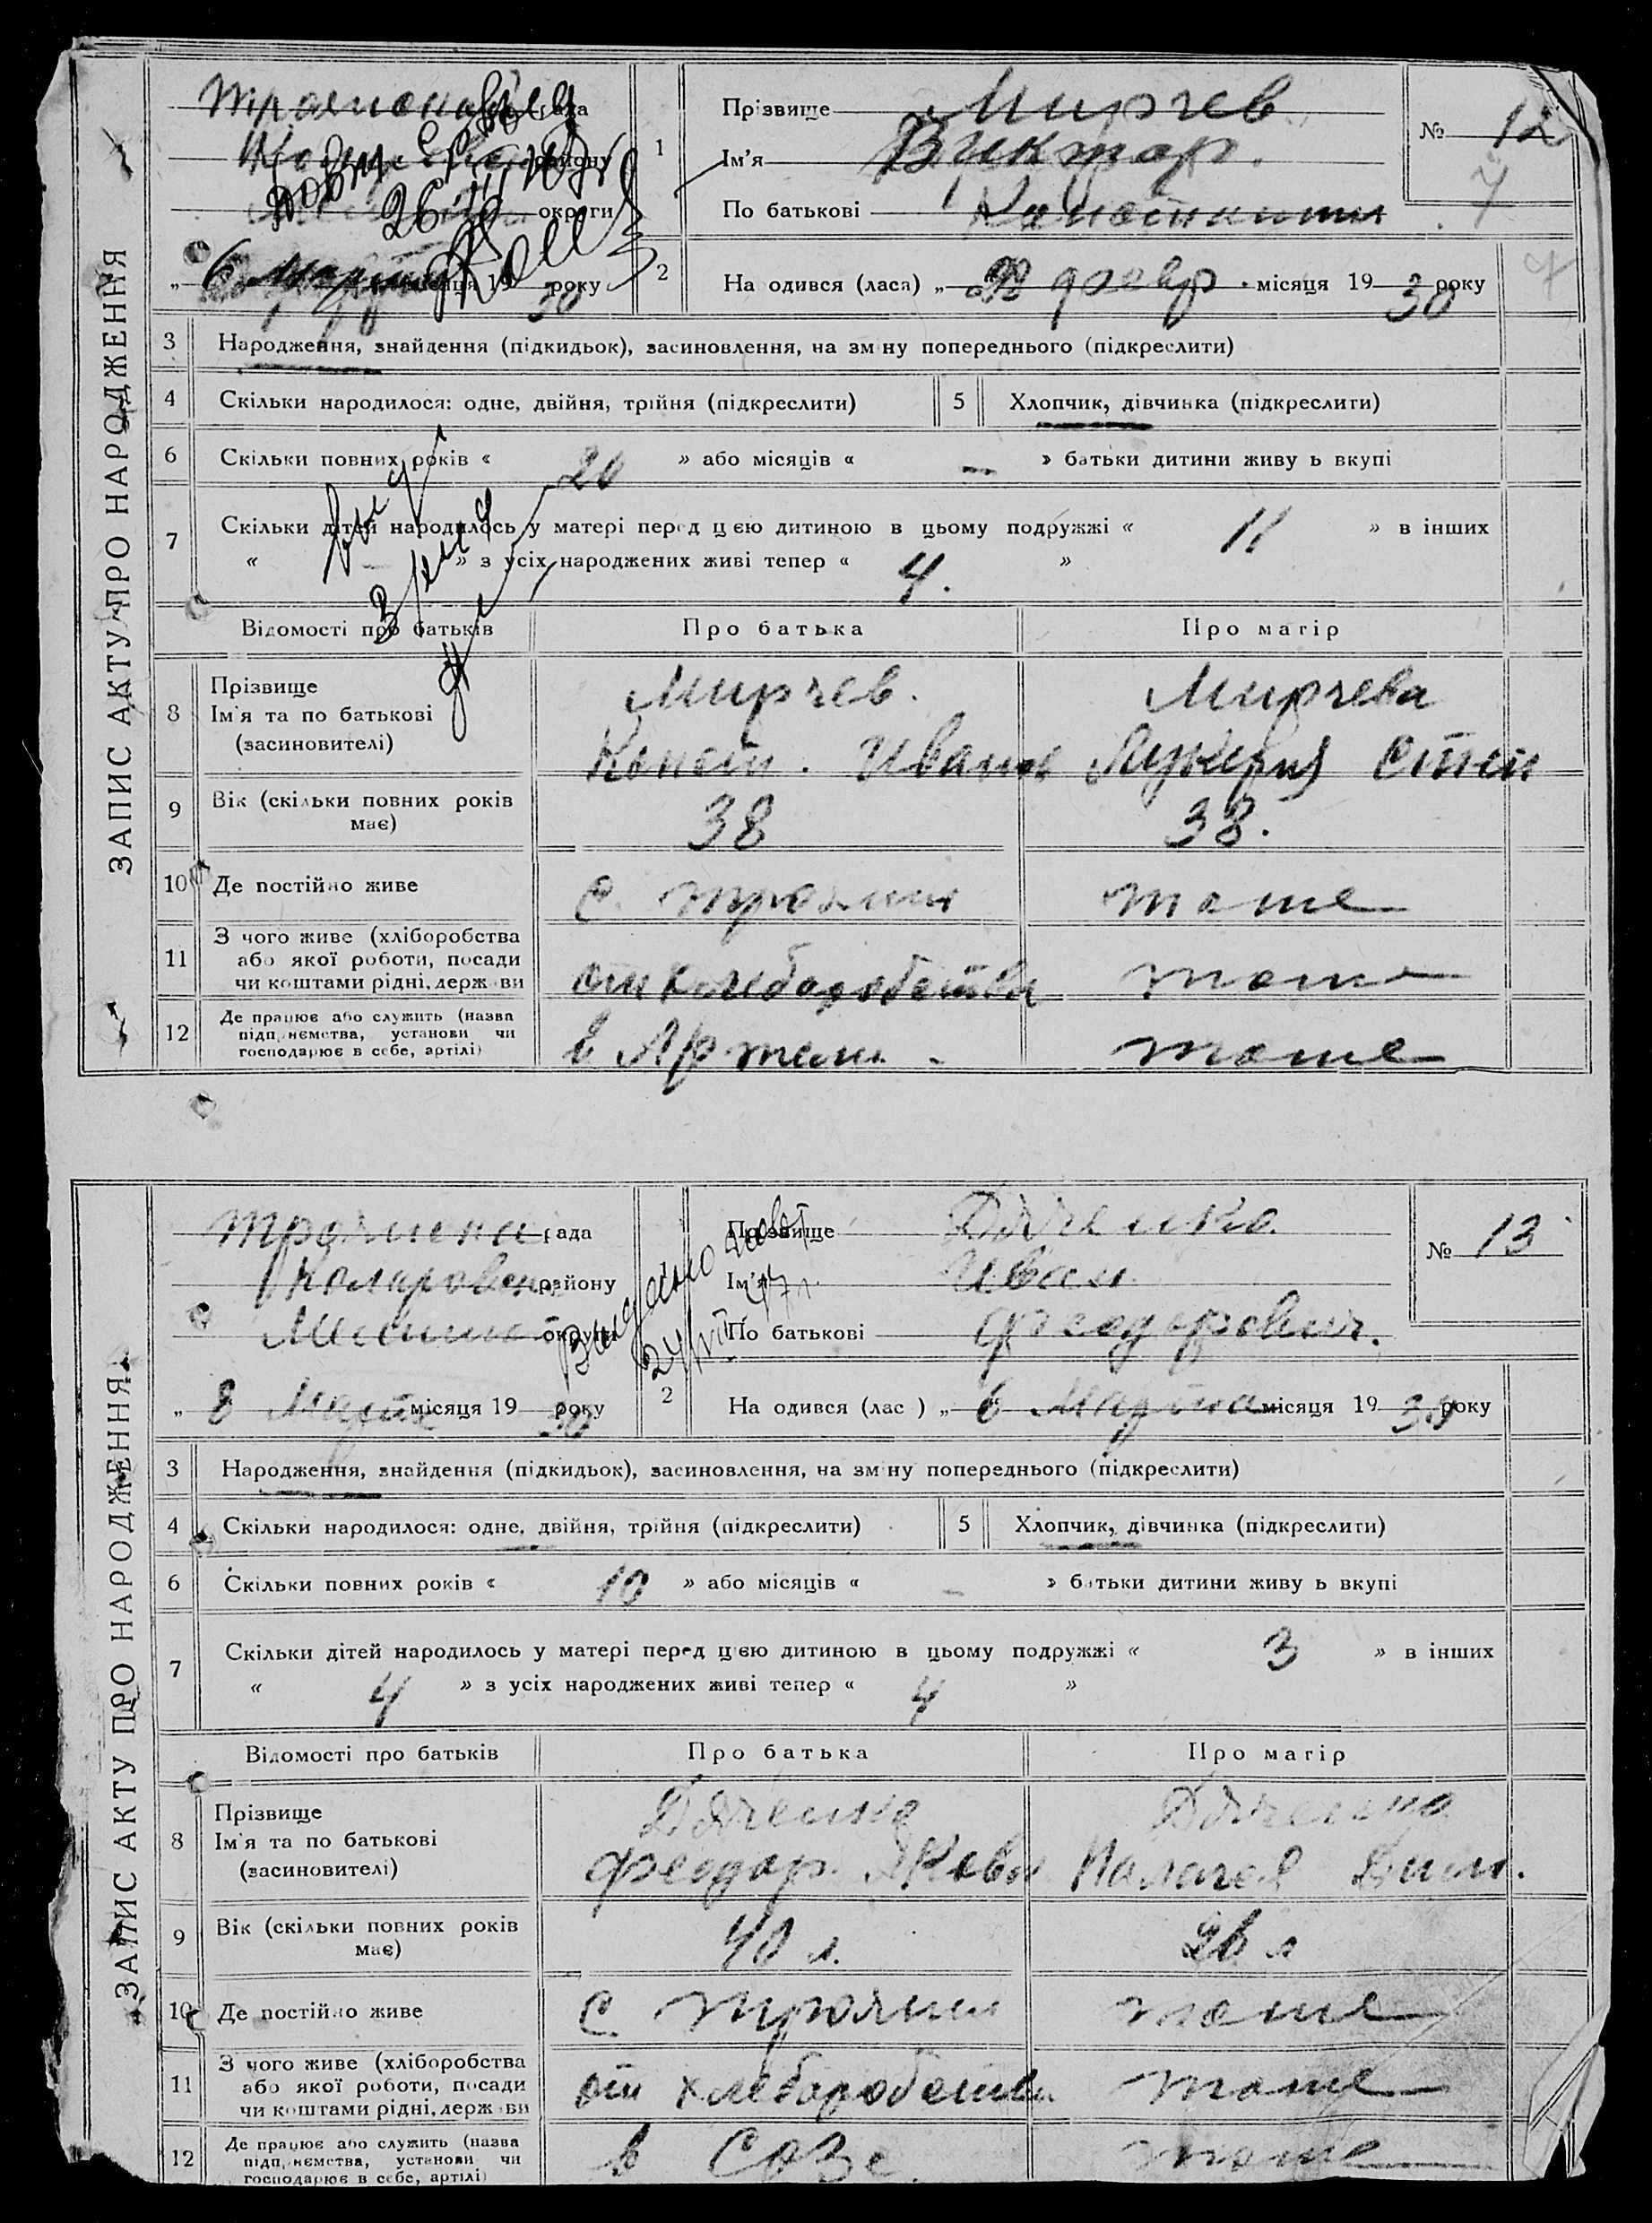 ЗАПИС АКТУ ПРО НАРОДЖЕННЯ
рада
району
округи
„ 6 Марта місяця 19 30 року
1
Прізвище Мирчев
Ім'я Виктор.
По батькові
№ 12
7
2
На одився (ласа) „ февр. місяця 19 30 року
3 Народження, знайдення (підкидьок), засиновлення, на зміну попереднього (підкреслити)
4 Скільки народилося: одне, двійня, трійня (підкреслити)
5 Хлопчик, дівчинка (підкреслити)
6 Скільки повних років « 20 » або місяців « — » батьки дитини живу ь вкупі
7 Скільки дітей народилось у матері перед цією дитиною в цьому подружжі « 11 » в інших
« — » з усіх народжених живі тепер « 4. »
Відомості про батьків Про батька Про матір
8 Прізвище
Ім'я та по батькові
(засиновителі)
Мирчев. Мирчева
Конст. Иванов Лукерия Степ
9 Вік (скільки повних років
має)
38 38.
10 Де постійно живе с. Трояны тоже
11 З чого живе (хліборобства
або якої роботи, посади
чи коштами рідні, держави
от хлеборобства тоже
12 Де працює або служить (назва
підприємства, установи чи
господарює в себе, артілі)
в Артели - тоже
ЗАПИС АКТУ ПРО НАРОДЖЕННЯ
Троянск рада
Коларовск району
округи
„ 8 Марта місяця 19 30 року
Видано
Прізвище Дяченко.
Ім'я Иван
По батькові Феодорович.
№ 13
2
На одився (лас ) „ 6 Марта місяця 19 30 року
3 Народження, знайдення (підкидьок), засиновлення, на зміну попереднього (підкреслити)
4 Скільки народилося: одне, двійня, трійня (підкреслити)
5 Хлопчик, дівчинка (підкреслити)
6 Скільки повних років « 10 » або місяців « — » батьки дитини живу ь вкупі
7 Скільки дітей народилось у матері перед цією дитиною в цьому подружжі « 3 » в інших
« 4 » з усіх народжених живі тепер « 4 »
Відомості про батьків Про батька Про матір
8 Прізвище
Ім'я та по батькові
(засиновителі)
Дяченко Дяченко
Феодор. Яковл Палагея
9 Вік (скільки повних років
має)
40 л. 36 л
10 Де постійно живе с. Трояны тоже
11 З чого живе (хліборобства
або якої роботи, посади
чи коштами рідні, держави
от хлеборобства тоже
12 Де працює або служить (назва
підприємства, установи чи
господарює в себе, артілі)
в Созе. тоже